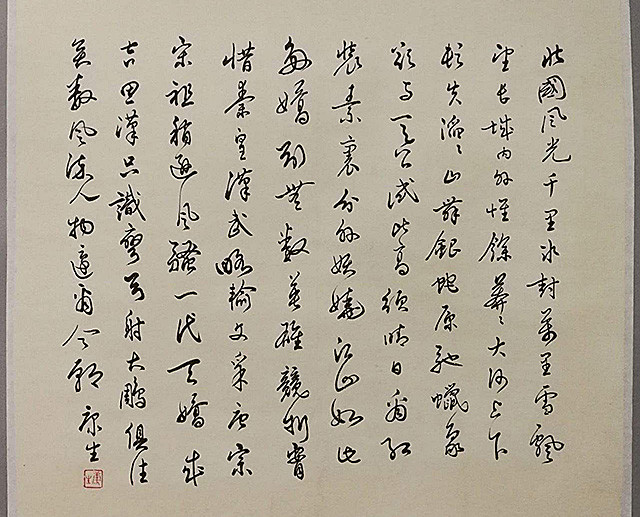 北國風光千里冰封萬里雪飄
望長城內外惟餘莽〻大河上下
頓失滔〻山舞銀蛇原馳蠟象
欲與天公試比高須晴日看紅
裝素裹分外妖嬈江山如此
多嬌引無數英雄競折腰
惜秦皇漢武略輸文采唐宗
宋祖稍遜風騷一代天嬌成
吉思漢只識彎弓射大鵰俱往
矣數風流人物還看今朝 康生